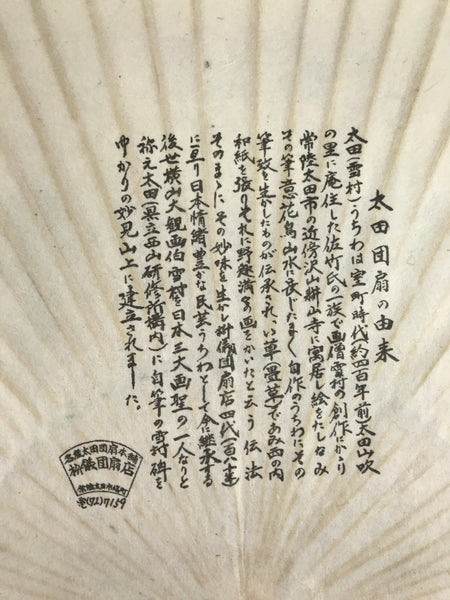 太田団扇の由来
太田(雪村)うちわは室町時代約四百年前太田山吹
の里に庵住した佐竹氏一族で画僧雪村の創作にかゝり
常陸太田市の近傍沢山耕山寺に寓居し絵をたしなみ
その筆意花鳥山水に長じたまく自作のうちわにその
筆致を生かしたものが伝承されい草(畳草)であみ西の内
和紙を張りそれに野趣満々の画をかいたと云う伝法
そのまゝにその妙味を生かし枡儀団扇店四代(百八十年)
に亘り日本情緒豊かな民芸うちわとして今に継承する
後世横山大観画伯雪村を日本三大画聖の一人なりと
称え太田(県立西山研修所構内)に自筆の雪村碑を
ゆかりの妙見山上に建立されました。
名産太田団扇本舗
枡儀団扇店
常陸太田市
☎(72)7159